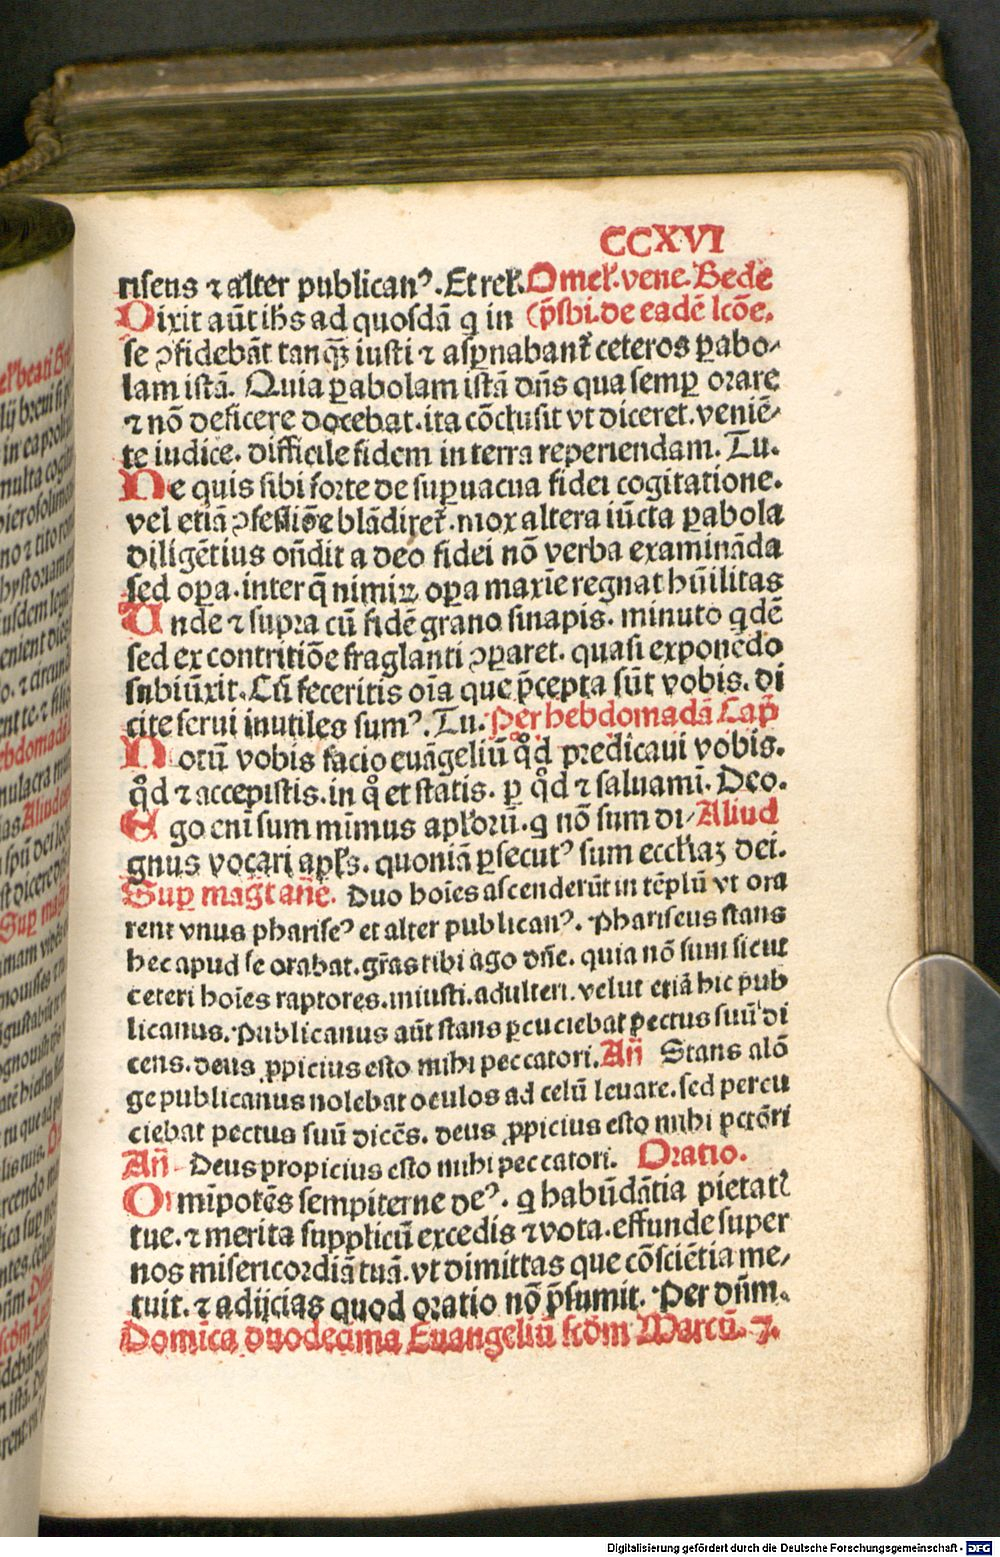 CCXVI
riseus ⁊ alter publicanꝰ. Et relꝭ. Omelꝭ. vene. Bede
Dixit aūt ihs ad quosdā q in (p̄sbi. de eadē lcōe.
se ↄfidebāt tanqꝫ iusti ⁊ aspnabant̄ ceteros ꝑabo⸗
lam istā. Quia ꝑabolam istā dn̄s qua semꝑ orare
⁊ nō deficere docebat. ita cōclusit vt diceret. veniē⸗
te iudice. difficile fidem in terra reperiendam. Tu.
Ne quis sibi forte de suꝑuacua fidei cogitatione.
vel etiā ↄfessiōe blādiret̄. mox altera iūcta ꝑabola
diligētius on̄dit a deo fidei nō verba examināda
sed oꝑa. inter q̄ nimiꝝ oꝑa maxīe regnat hūilitas
Unde ⁊ supra cū fidē grano sinapis. minuto qdē
sed ex contritiōe fraglanti ↄꝑaret. quasi exponēdo
subiūxit. Cū feceritis oīa que p̄cepta sūt vobis. di
cite serui inutiles sumꝰ. Tu. Per hebdomadā Cap̄
Notū vobis facio euāgeliū qͦd predicaui vobis.
qͦd ⁊ accepistis. in qͦ et statis. ꝑ qͦd ⁊ saluamī. Deo.
Ego eni sum mīmus aplꝭoꝝū. q nō sum di⸗ Aliud
gnus vocari aplꝭs. quoniā ꝑsecutꝰ sum eccliaꝫ dei.
Suꝑ magt̄ an̄e. Duo hoīes ascenderūt in tēplū vt ora
rent vnus phariseꝰ et alter publicanꝰ. Phariseus stans
hec apud se orabat. gr̄as tibi ago dn̄e. quia nō sum sicut
ceteri hoīes raptores. iniusti. adulteri. velut etiā hic pub
licanus. Publicanus aūt stans ꝑcuciebat pectus suū di
cens. deus ꝓpicius esto mihi peccatori. An̄ Stans a lō
ge publicanus nolebat oculos ad celū leuare. sed percu
ciebat pectus suū dicēs. deus ꝓpicius esto mihi pctōri
An̄ Deus propicius esto mihi peccatori. Oratio.
Omīpotēs sempiterne deꝰ. q habūdātia pietatꝭ
tue. ⁊ merita supplicū excedis ⁊ vota. effunde super
nos misericordiā tuā. vt dimittas que cōsciētia me⸗
tuit. ⁊ adijcias quod oratio nō p̄sumit. Per dn̄m.
Domīca duodecima Euangeliū scdm Marcū. 7.
Digitalisierung gefördert durch die Deutsche Forschungsgemeinschaft - DFG